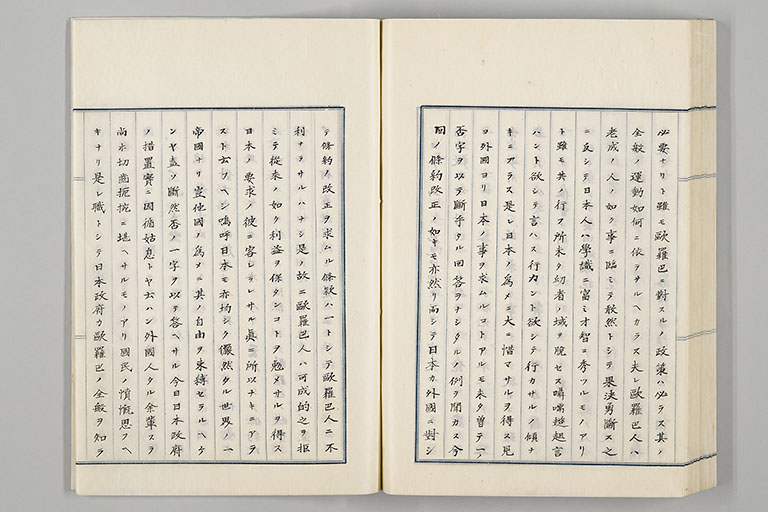 必要ナリト雖モ歐羅巴ニ對スルノ政策ハ必ラス其ノ
全般ノ運動如何ニ依ラサルヘカラス夫レ歐羅巴人ハ
老成ノ人ノ如ク事ニ臨ミテ敢然トシテ果決勇斷ス之
ニ反シテ日本人ハ學識ニ富ミ才智ニ秀ツルモノアリ
ト雖モ其ノ行フ所未タ幼者ノ域ヲ脱セス囁嚅趑趄言
ハント欲シテ言ハス行カント欲シテ行カサルノ傾ナ
キニアラス是レ日本ノ爲メニ大ニ惜マサルヲ得ス見
ヨ外國ヨリ日本ノ事ヲ求ムルコトアルモ未タ曾テ一ノ
否字ヲ以テ斷乎タル回答ヲナシタルノ例ヲ聞カス今
回ノ條約改正ノ如キモ亦然リ而シテ日本カ外國ニ對シ
テ條約ノ改正ヲ求ムル條款ハ一トシテ歐羅巴人ニ不
利ナラサルハナシ是ノ故ニ歐羅巴人ハ可成的之ヲ拒
ミテ從來ノ如ク利益ヲ保タンコトヲ勉メサルヲ得ス
日本ノ要求ノ彼ニ容レラレサル眞ニ所以ナキニアラ
スト云フヘシ嗚呼日本モ亦均シク儼然タル世界ノ一
帝國ナリ豈他國ノ爲メニ其ノ自由ヲ束縛セラルヘケ
ンヤ盍ソ斷然否ノ一字ヲ以テ答ヘサル今日日本政府
ノ措置實ニ因循姑息トヤ云ハン外國人タル余輩スラ
尚ホ切齒扼腕ニ堪ヘサルモノアリ國民ノ憤慨思フヘ
キナリ是レ職トシテ日本政府カ歐羅巴ノ全般ヲ知ラ